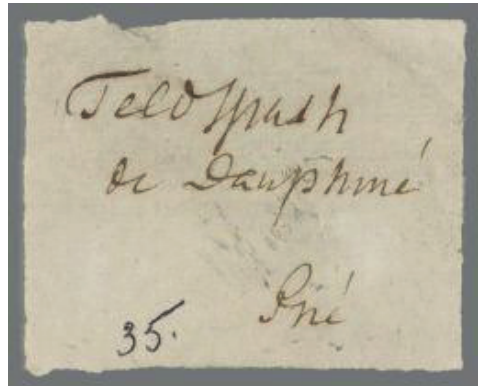 Feldspath
de Dauphiné
35.